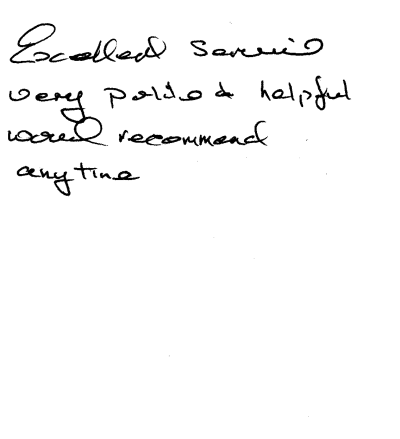 Excellent Service
very polite & helpful
would recommend
anytime